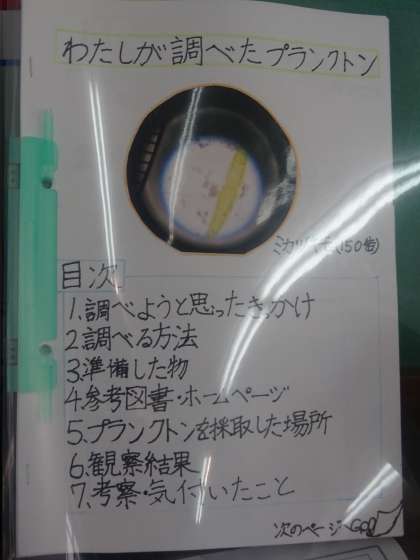 わたしが調べたプランクトン
ミカヅキモ(150倍)
目次
1.調べようと思ったきっかけ
2.調べる方法
3.準備した物
4.参考図書・ホームページ
5.プランクトンを採取した場所
6.観察結果
7.考察・気付いたこと
次のページへGO!